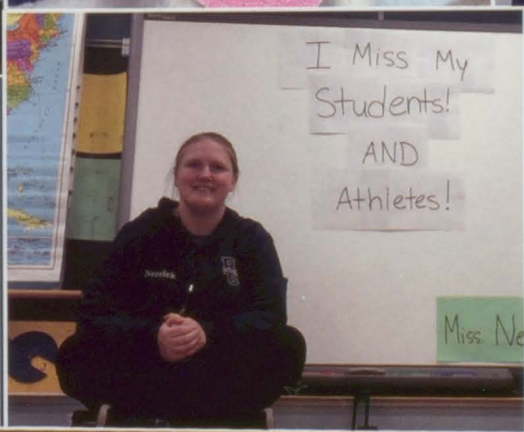 I Miss My
Students!
AND
Athletes!
Miss. Ne